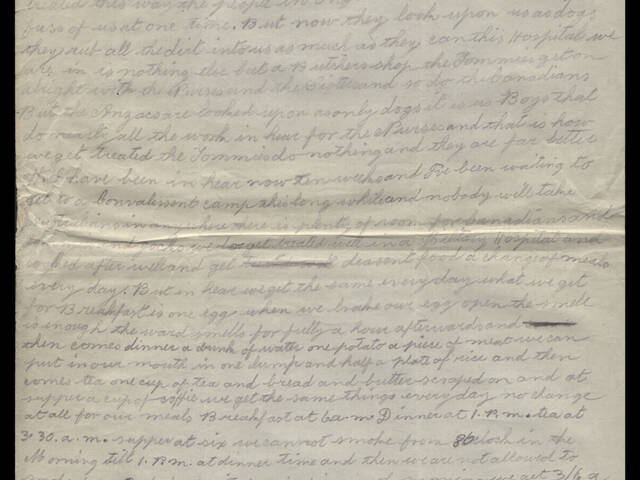 treated this way the people in Eng
fuss of us at one time. But now they look upon us as dogs
they rub all the dirt into us as much as they can this Hospital we
are in is nothing else but a Butchers shop the Tommies get on
alright with the Nurses and the Sisters and so do the Canadians
But the Anzacs are looked upon as only dogs it is us Boys that
do nearly all the work in hear for the Nurses and that is how
we get treated the Tommies do nothing and they are far better
I have been in hear now ten weeks and I've been waiting to
get to a Convalescent camp this long while and nobody will take
Australians in any where there is plenty of room for Canadians and
we do get treated well in a Military Hospital and
looked after well and get deasent food a change of meals
every day. But in hear we get the same every day what we get
for Breakfast is one egg when we brake our egg open the smell
is inough the ward smells for fully a hour afterwards and
then comes dinner a drink of water one potato a piece of meat we can
put in our mouth in one lump and half a plate of rice and then
comes tea one cup of tea and bread and butter scraped on and at
supper a cup of coffie we get the same things every day no change
at all for our meals Breakfast at 6a.m. Dinner at 1.P.m. tea at
3.30.a.m. supper at six we cannot smoke from 8 oclosh in the
Morning till 1.P.m. at dinner time and then we are not allowed to
we get 3/6 a